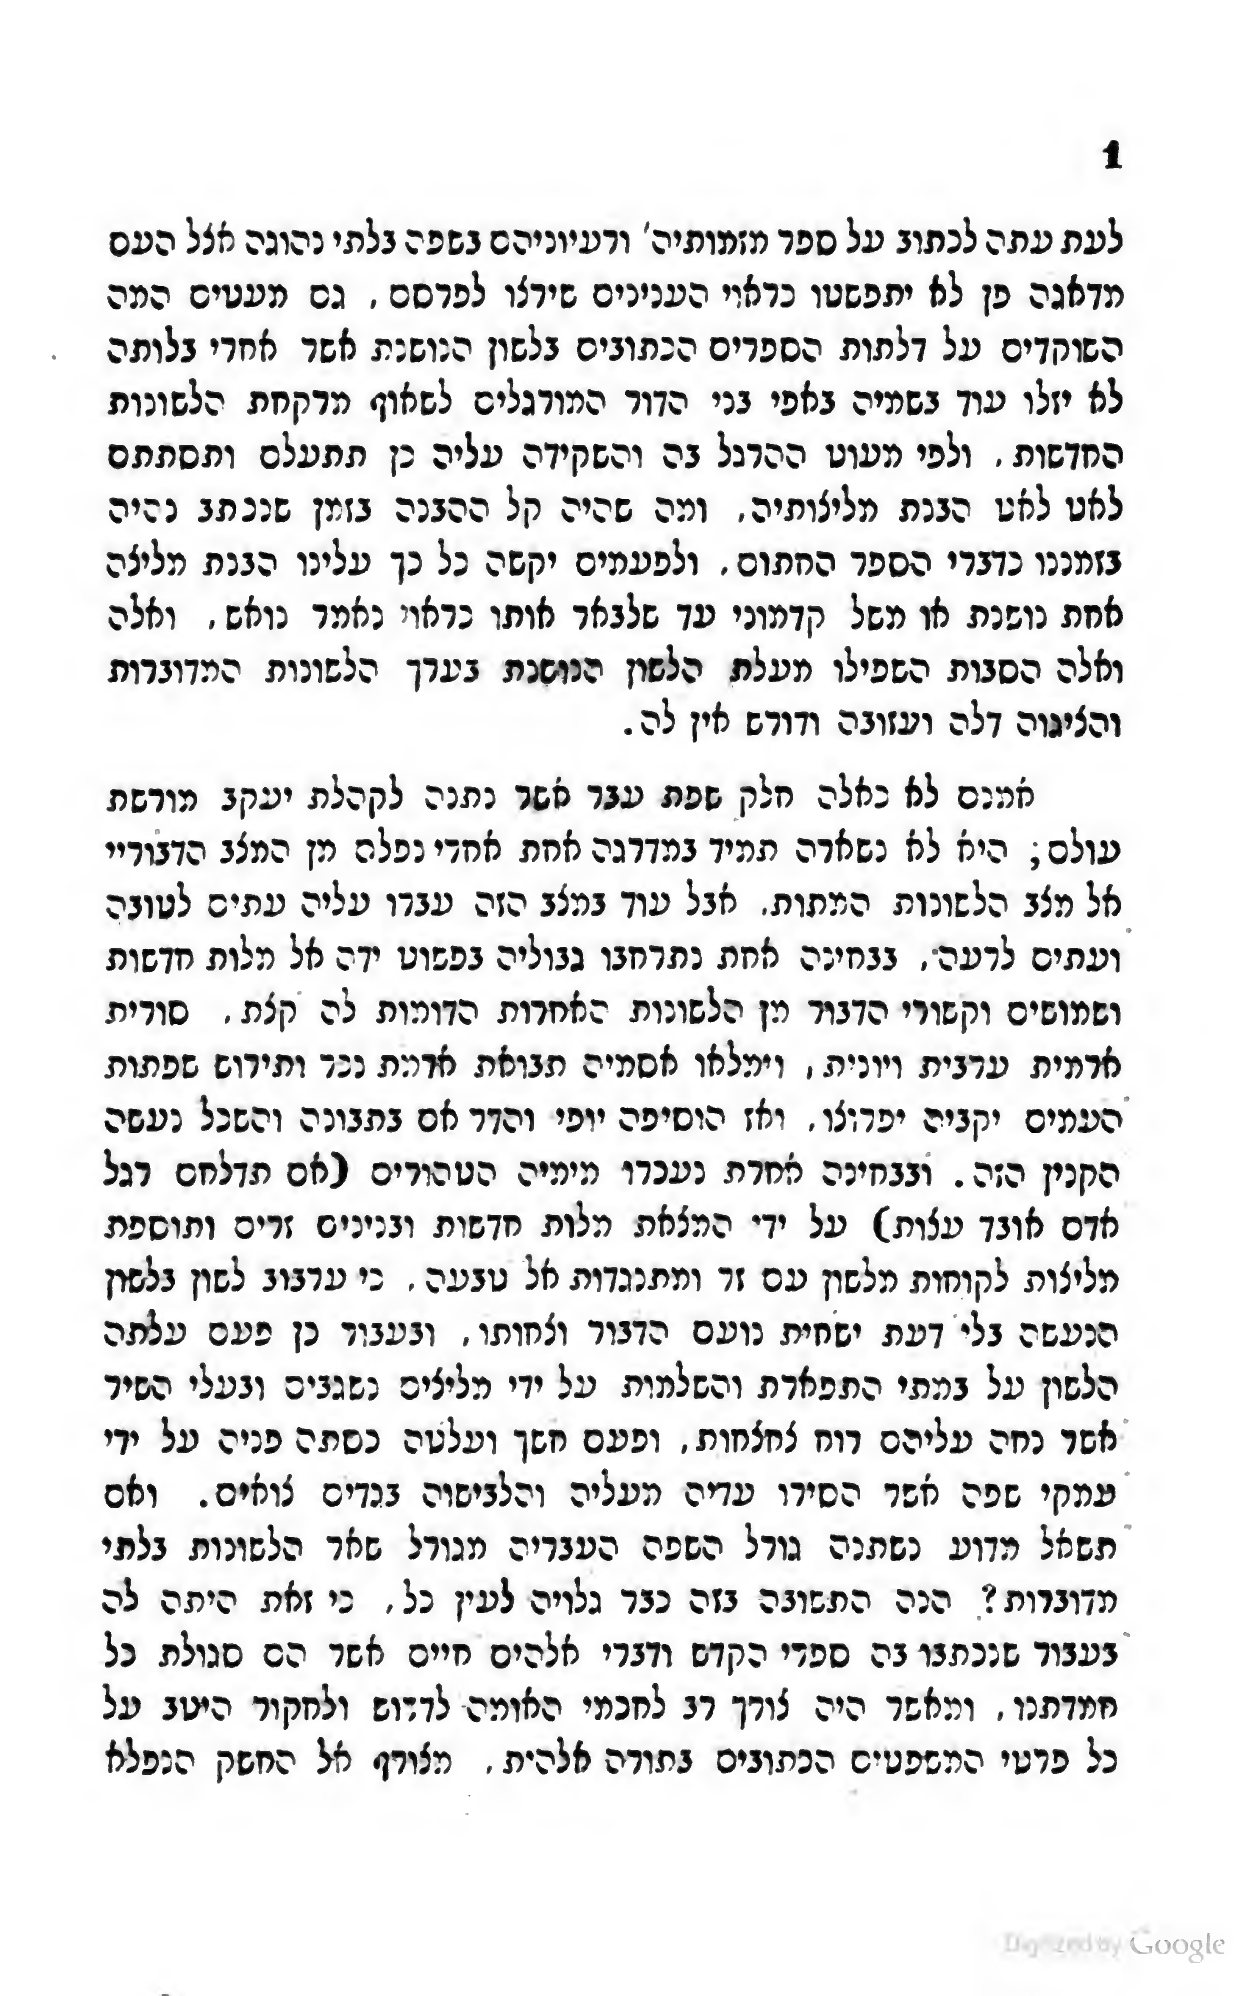 1
לעת עתה לכתוב על ספר מזמותיה' ורעיוניהם בשפה בלתי נהוגה אצל העם
מדאגה פן לא יתפשטו כראוי הענינים שירצו לפרסם, גם מעטים המה
השוקדים על דלתות הספרים הכתובים בלשון הנושנת אשר אחרי בלותה
לא יזלו עוד בשמיה באפי בני הדור המורגלים לשאוף מרקחת הלשונות
החדשות, ולפי מעוט ההרגל בה והשקידה עליה כן תתעלם ותסתתם
לאט לאט הבנת מליצותיה, ומה שהיה קל ההבנה בזמן שנכתב נהיה
בזמננו כדברי הספר החתום, ולפעמים יקשה כל כך עלינו הבנת מליצה
אחת נושנת או משל קדמוני עד שלבאר אותו כראוי נאמר נואש, ואלה
ואלה הסבות השפילו מעלת הלשון הנושנת בערך הלשונות המדוברות
והציגוה דלה ועזובה ודורש אין לה.
אמנם לא כאלה חלק שפת עבר אשר נתנה לקהלת יעקב מורשת
עולם; היא לא נשארה תמיד במדרגה אחת אחרי נפלה מן המצב הדבוריי
אל מצב הלשונות המתות, אבל עוד במצב הזה עברו עליה עתים לטובה
ועתים לרעה, בבחינה אחת נתרחבו גבוליה בפשוט ידה אל מלות חדשות
ושמושים וקשורי הדבור מן הלשונות האחרות הדומות לה קצת, סורית
ארמית ערבית ויונית, וימלאו אסמיה תבואת אדמת נכר ותירוש שפתות
העמים יקביה יפרוצו, ואז הוסיפה יופי והדר אם בתבונה והשכל נעשה
הקנין הזה. ובבחינה אחרת נעכרו מימיה הטהורים (אם תדלחם רגל
אדם אובד עצות) על ידי המצאת מלות חדשות ובנינים זרים ותוספת
מליצות לקוחות מלשון עם זר ומתנגדות אל טבעה, כי ערבוב לשון בלשון
הנעשה בלי דעת ישחית נועם הדבור וצחותו, ובעבור כן פעם עלתה
הלשון על במתי התפארת והשלמות על ידי מליצים נשגבים ובעלי השיר
אשר נחה עליהם רוח צחצחות, ופעם חשך ועלטה כסתה פניה על ידי
עמקי שפה אשר הסירו עדיה מעליה והלבישוה בגדים צואים. ואם
תשאל מדוע נשתנה גורל השפה העבריה מגורל שאר הלשונות בלתי
מדוברות? הנה התשובה בזה כבר גלויה לעין כל, כי זאת היתה לה
בעבור שנכתבו בה ספרי הקדש ודברי אלהים חיים אשר הם סגולת כל
חמדתנו, ומאשר היה צורך רב לחכמי האומה לדרוש ולחקור היטב על
כל פרטי המשפטים הכתובים בתורה אלהית, מצורף אל החשק הנפלא
Digitized by Google